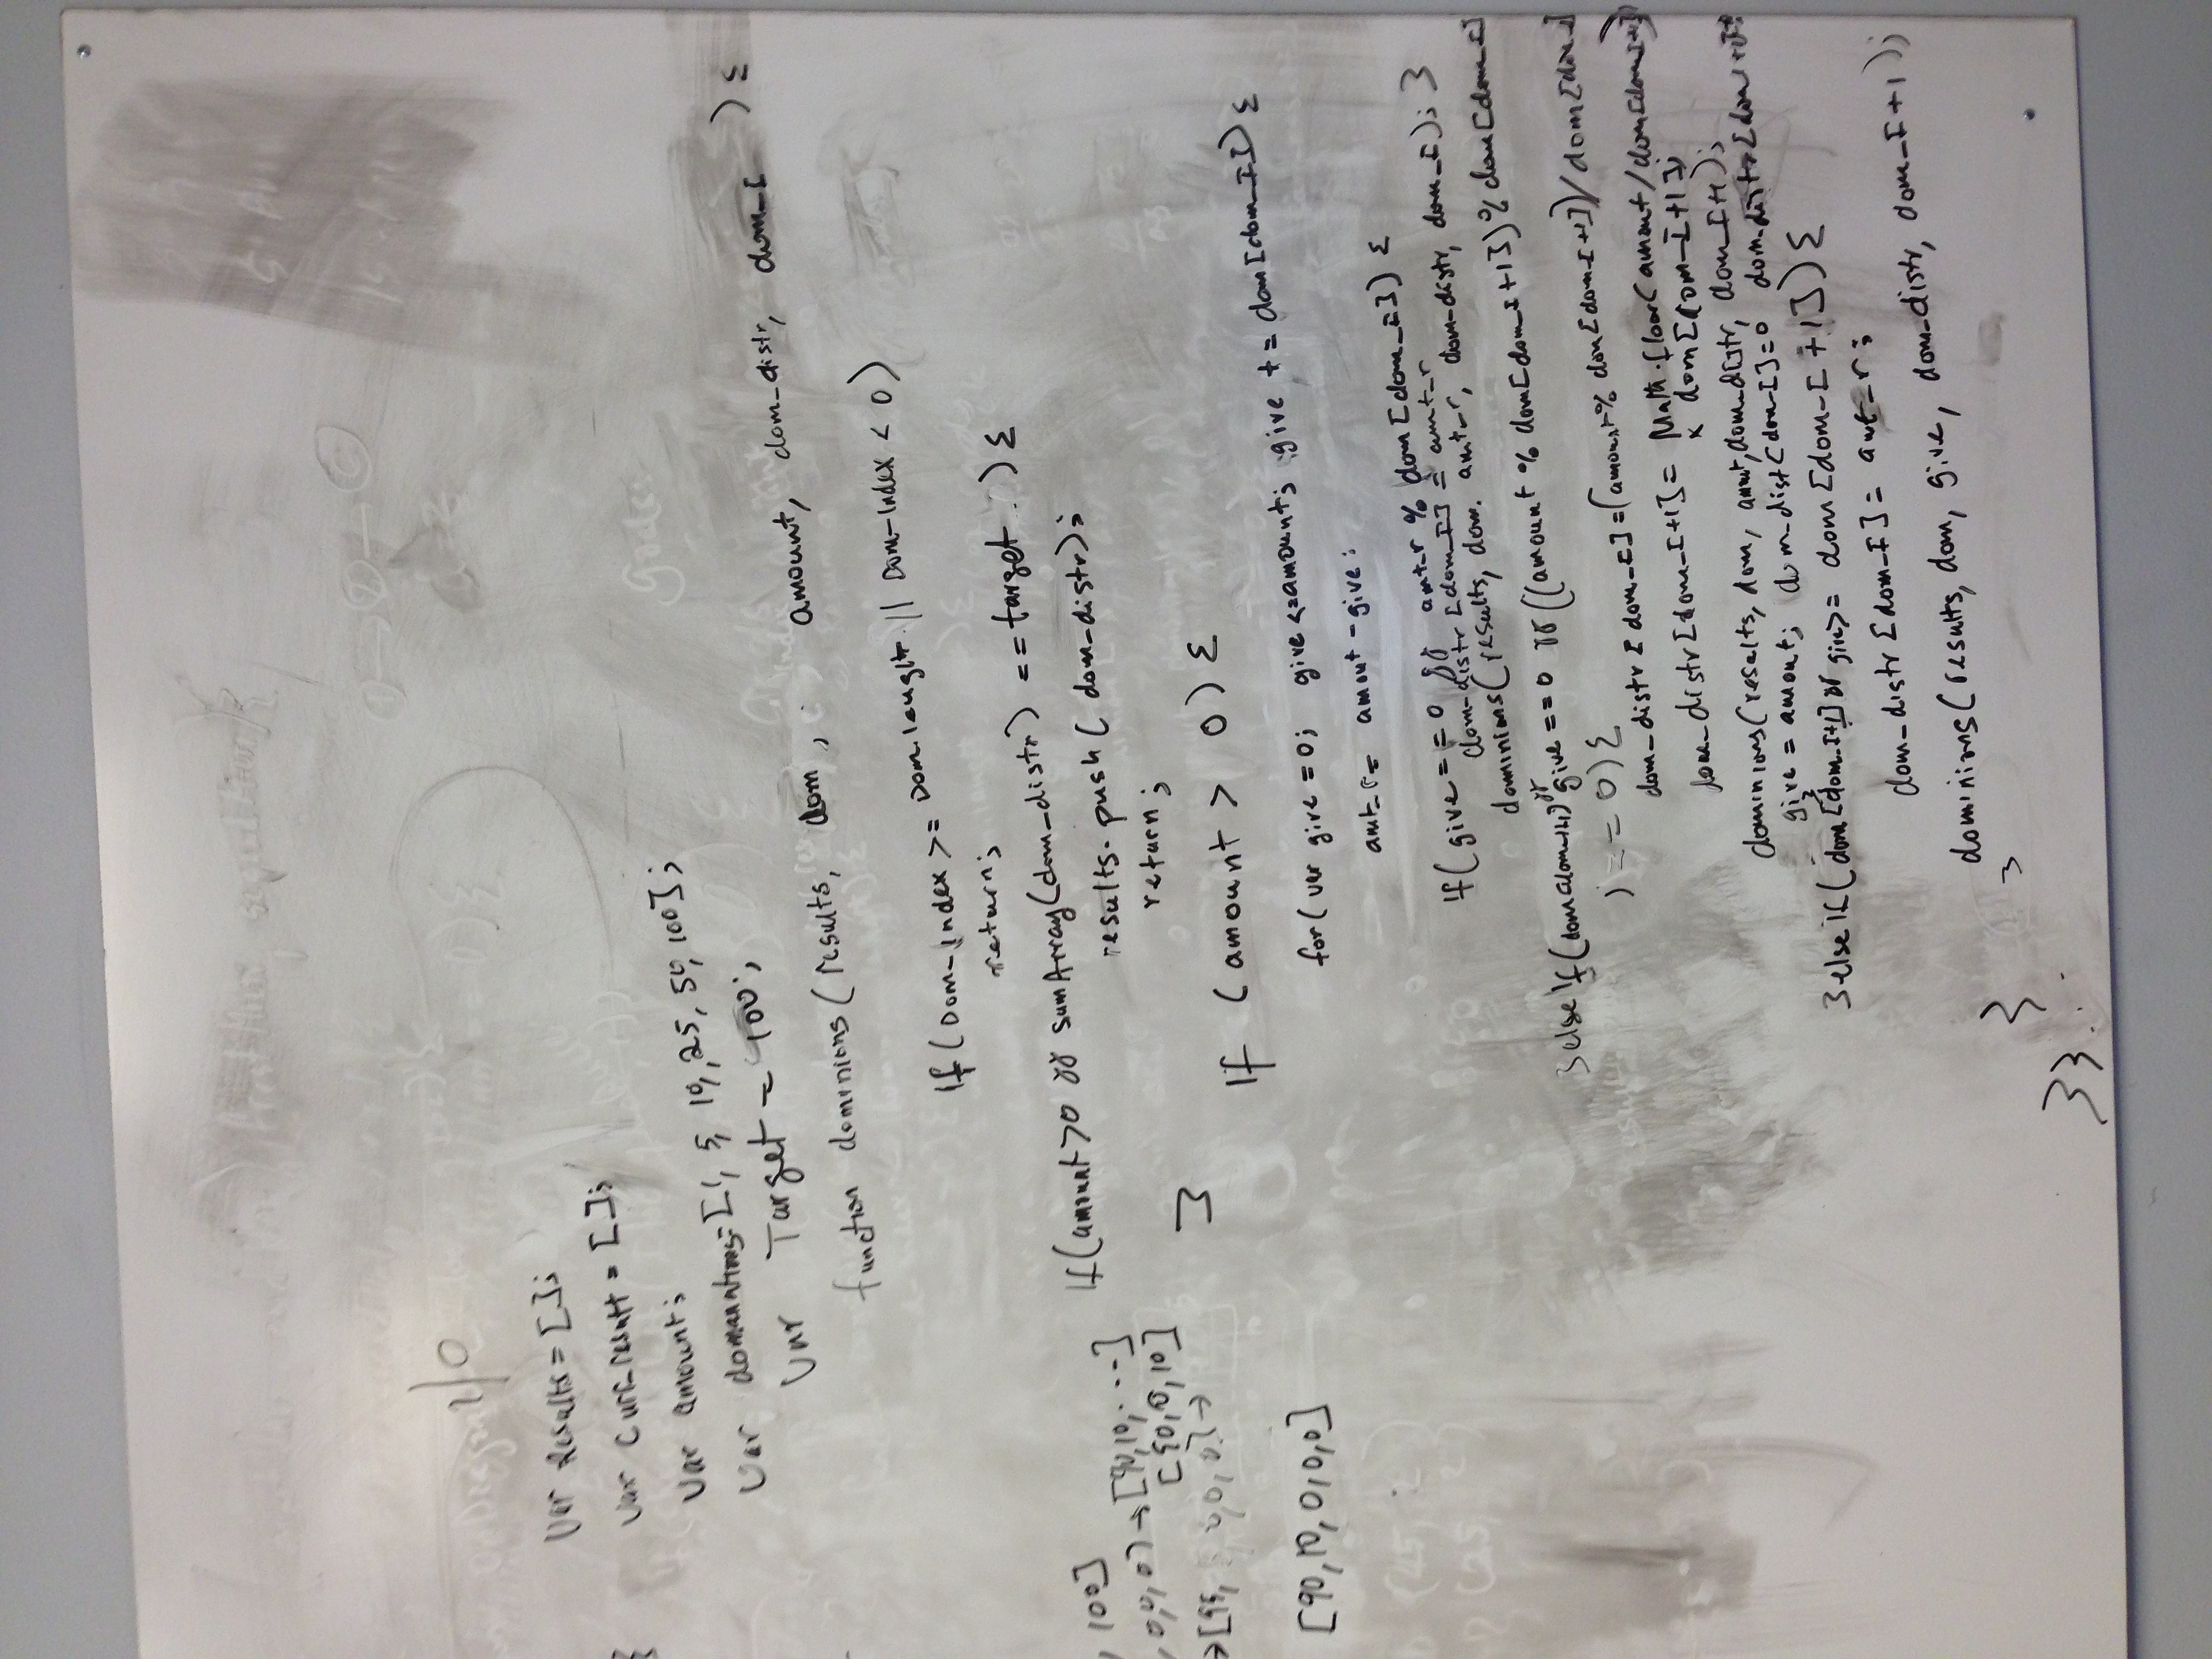 1/0
Var Results = [];
Var Curr_result = [];
Var amount;
Var domanations=[1, 5, 10, 25, 50, 100];
Var Target = 100;
function dominions(results, dom, amount, dom_distr, dom_I ){
If(Dom_Index >= Dom.lenght || Dom_Index < 0)
return;
If(amount>0 && sumArray(dom_distr) == target ){
results.push( dom_distr);
return;
}
, 100]
,0,0,0) → [90,10, ---]
[90,0,10]
→[95, 0,0,0] →
[90,10,0,0,0]
If (amount > 0) {
for( var give = 0; give <=amount; give += dom[dom_I]) {
amt_r= amout - give;
If( give == 0 && amt_r % dom[dom_I]) {
dom_distr[dom_I] = amt_r
dominions(results, dom, amt_r, dom_distr, dom_I); }
}else If( give == 0 && ((amount % dom[dom_I+1]) % dom[dom_I]
) == 0){
dom_distr[dom_I]=(amount% dom[dom_I+1])/dom[dom_I]
dom_distr[dom_I+1]= Math.floor(amount/dom[dom_I+1])
x dom[dom_I+1];
dominions(results, dom, amnt, dom_distr, dom_I+1);
give = amount; dom_dist[dom_I]=0
}else If( dom[dom_I+1] && give>= dom[dom_I+1]){
dom_distr[dom_I]= amt_r;
dominions(results, dom, give, dom_distr, dom_I+1);
}
}
}}